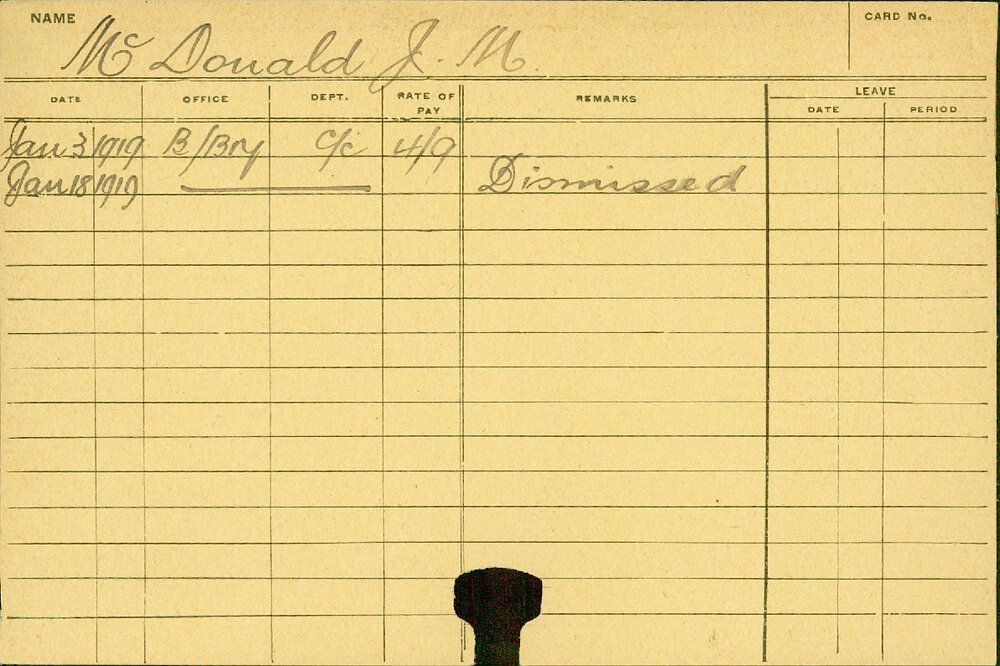 NAME Mc Donald J. M. CARD No.
DATE OFFICE DEPT. RATE OF PAY REMARKS LEAVE
DATE PERIOD
Jan 3 1919 B/Bry C/c 4/9
Jan 18 1919 Dismissed